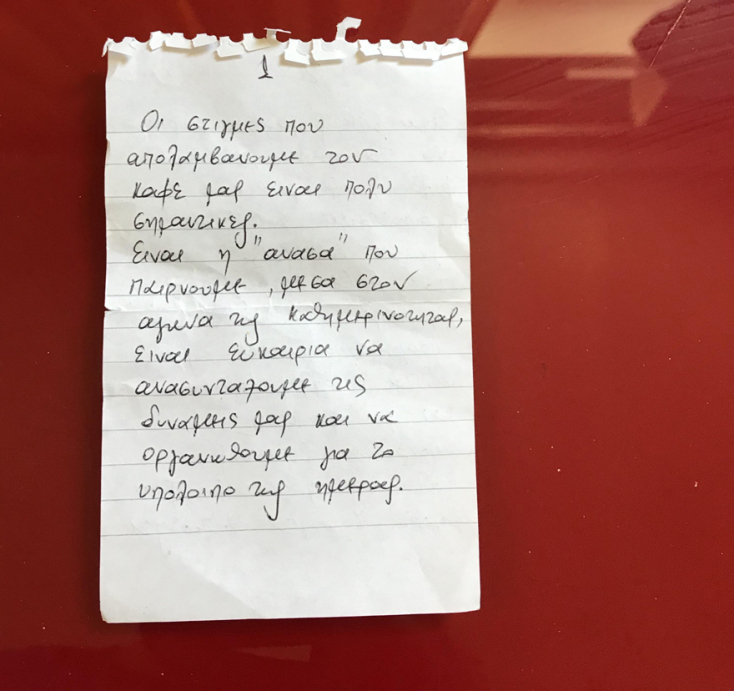 1
Οι στιγμες που
απολαμβανουμε τον
καφε μας ειναι πολυ
σημαντικες.
Ειναι η "ανασα" που
παιρνουμε, μεσα στον
αγωνα της καθημερινοτητας,
ειναι ευκαιρια να
ανασυνταξουμε τις
δυναμεις μας και να
οργανωθουμε για το
υπολοιπο της ημερας.